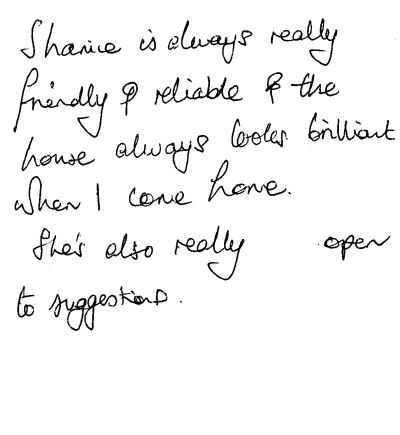 Sharice is always really
friendly & reliable & the
house always looks brilliant
when I come home.
She's also really open
to suggestions.